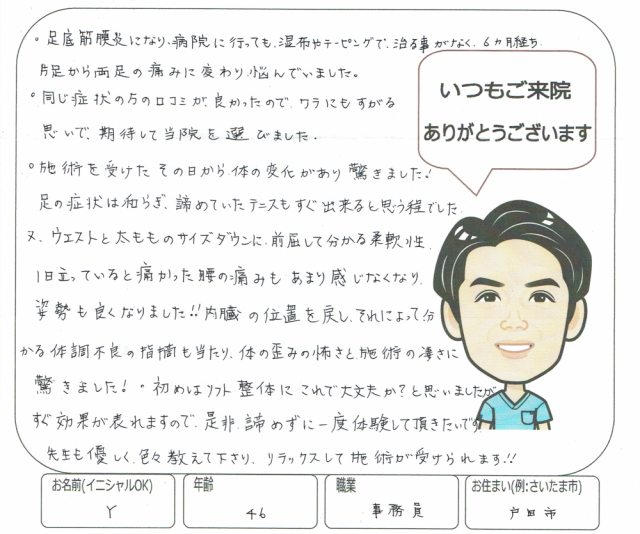 。足底筋膜炎になり、病院に行っても、湿布やテーピングで、治る事がなく、6ヵ月経ち、
片足から両足の痛みに変わり、悩んでいました。
。同じ症状の方の口コミが、良かったので、ワラにもすがる
思いで、期待して当院を選びました。
。施術を受けたその日から、体の変化があり驚きました!
足の症状は和らぎ、諦めていたテニスもすぐ出来ると思う程でした。
又、ウエストと太もものサイズダウンに、前屈して分かる柔軟性、
1日立っていると痛かった腰の痛みもあまり感じなくなり、
姿勢も良くなりました!!内臓の位置を戻し、それによって分
かる体調不良の指摘も当たり、体の歪みの怖さと施術の凄さに
驚きました!。初めはソフト整体にこれで大丈夫か?と思いましたが
すぐ効果が表れますので、是非、諦めずに一度体験して頂きたいです。
先生も優しく、色々教えて下さり、リラックスして施術が受けられます!!
いつもご来院
ありがとうございます
お名前(イニシャルOK)
Y
年齢
46
職業
事務員
お住まい(例:さいたま市)
戸田市